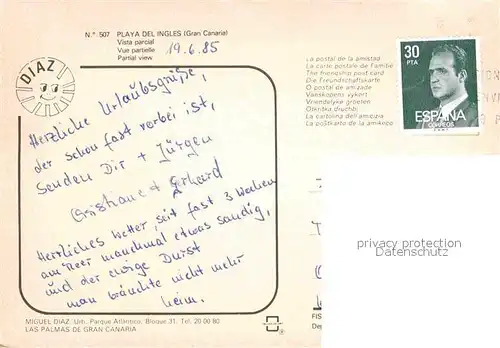 N.º 507 PLAYA DEL INGLES (Gran Canaria)
Vista parcial
Vue partielle
Partial view
19.6.85
DIAZ
Herzliche Urlaubsgrüße,
der schon fast vorbei ist,
senden Dir + Jürgen
Christiane + Erhard
Herrliches Wetter, seit fast 3 Wochen
am Meer manchmal etwas sandig,
und der ewige Durst
man bräuchte nicht mehr
heim.
MIGUEL DIAZ. Urh. Parque Atlántico, Bloque 31. Tel. 20 00 80
LAS PALMAS DE GRAN CANARIA
La postal de la amistad
La carte postale de l'amitié
The friendship post card
Die Freundschaftskarte
O postal de amizade
Vanskopens vykort
Vriendelyke groeten
La cartolina dell'amicizia
30
PTA
ESPAÑA
CORREOS
privacy protection
Datenschutz
FIS
De